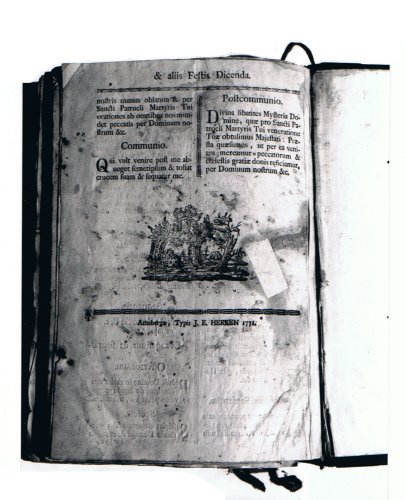 & aliis Festis Dicenda.
nostris munus oblatum & per
Sancti Patrocli Martyris Tui
orationes ab omnibus nos mun-
det peccatis per Dominum no-
strum &c.
Communio.
Qui vult venire post me ab-
neget semetipsum & tollat
crucem suam & sequatur me.
Postcommunio.
Divina libantes Mysteria Do-
mine, quæ pro Sancti Pa-
trocli Martyris Tui veneratione
Tuæ obtulimus Majestati: Præ-
sta quæsumus, ut per ea veni-
am mereamur peccatorum &
cœlestis gratiæ donis reficiamur,
per Dominum nostrum &c.
Typis J. E. HERKEN